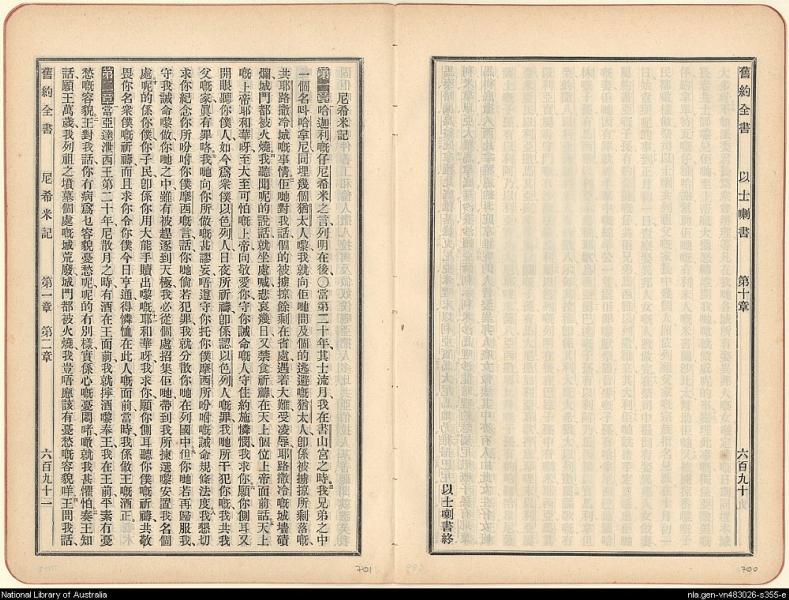 舊約全書 以士喇書 第十章 六百九十
以士喇書終
尼希米記
第一章哈迦利嘅仔尼希米之言列明在後〇當第二十年其士流月我在書山宮之時我兄弟之中
一個名叫哈拿尼同埋幾個猶太人嚟我就向佢哋問及個的逃避嘅猶太人卽係被擄掠所剩落嘅
共耶路撒冷城嘅事情佢哋對我話個的被擄掠餘剩在省處遇着大難受凌辱耶路撒冷嘅城墻磧
爛城門都被火燒我聽聞呢的說話就坐處喊悲哀幾日又禁食祈禱在天上個位上帝面前話天上
嘅上帝耶和華呀至大至可怕嘅上帝向敬愛你守你誡命嘅人守住約施憐憫我求你願你側耳又
開眼聽你僕人如今為衆僕以色列人日夜所祈禱卽係認以色列人嘅罪我哋所干犯你嘅我共我
父嘅家眞有罪咯我哋向你所做嘅甚謬妄唔遵守你托你僕摩西所吩咐嘅誡命規條法度我懇切
求你紀念你所吩咐你僕摩西嘅言話你哋倘若犯罪我就分散你哋在列國中但你哋若再歸服我
守我誡命嚟做你哋之中雖有被趕逐到天極我必從個處招集佢哋帶到我所揀選嚟安置我名個
處呢的係你僕你子民卽係你用大能手贖出嚟嘅耶和華呀我求你願你側耳聽你僕嘅祈禱共敬
畏你名衆僕嘅祈禱而且求你令你僕今日亨通得憐恤在此人嘅面前當時我係做王嘅酒正
第二章當亞達泄西王第二十年尼散月之時有酒在王面前我就擰酒嚟奉王我在王前平素冇憂
愁嘅容貌王對我話你冇病爲乜容貌憂愁呢呢的冇別樣實係心嘅憂悶啫噉就我甚懼怕奏王知
話願王萬歲我列祖之墳墓個處嘅城荒廢城門都被火燒我豈唔應該有憂愁嘅容貌咩王問我話
舊約全書 尼希米記 第一章 第二章 六百九十一
701
700
National Library of Australia
nla.gen-vn483026-s355-e